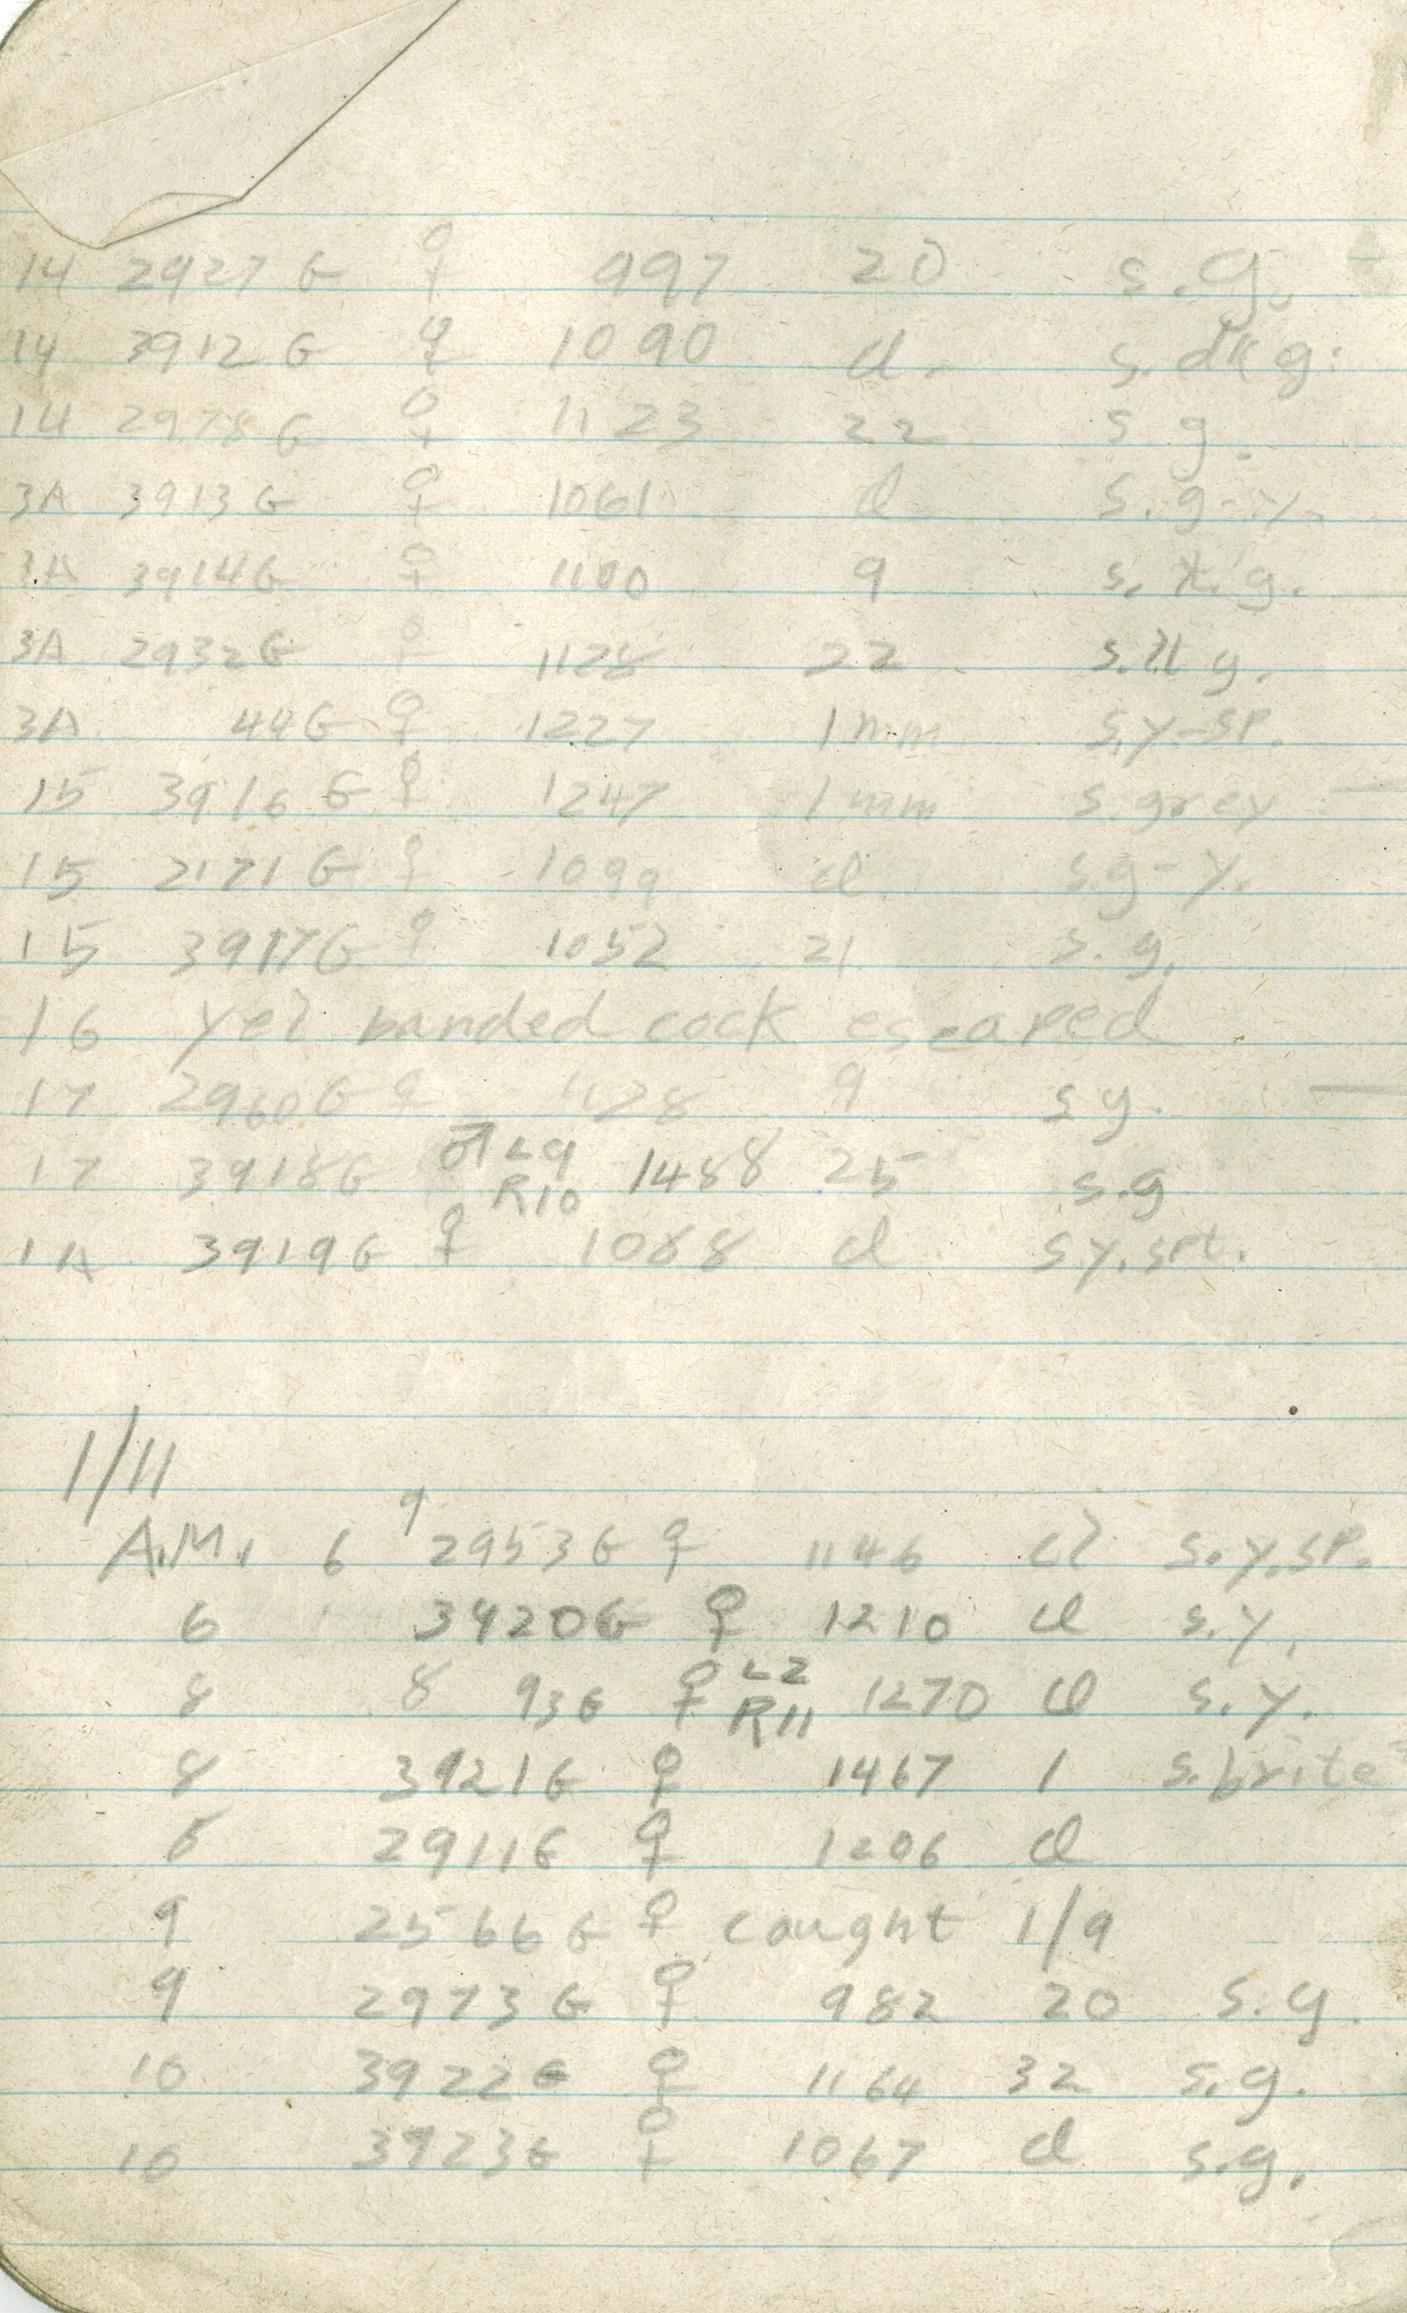 14 2927 G ♀ 997 20 s.g.
14 3912 G ♀ 1090 cl. s. dk g.
14 2978 G ♀ 1123 22 s g.
3A 3913 G ♀ 1061 cl s. g-y.
3A 3914 G ♀ 1100 9 s. g.
3A 2932 G ♀ 1128 22 s. lt g.
3A 44 G ♀ 1227 1 mm s.y-sp.
15 3916 G ♀ 1247 1 mm s. grey
15 2171 G ♀ 1099 cl. s.g-y.
15 3917 G ♀ 1052 21 s. g.
16 yel banded cock escaped
17 2960 G ♀ 1128 9 s g.
17 3918 G ♂ L9 R10 1488 25 s.g
1A 3919 G ♀ 1088 cl s y. spt.
1/11
A.M. 6 9 2953 G ♀ 1146 cl s.y.sp.
6 3920 G ♀ 1210 cl s.y.
8 8 93 G ♀ L2 R11 1270 cl s.y.
8 3921 G ♀ 1467 1 s.brite
2911 G ♀ 1206 cl
9 2566 G ♀ caught 1/9
9 2973 G ♀ 982 20 s.g.
10 3922 G ♀ 1164 32 s.g.
10 3923 G ♀ 1067 cl s.g.